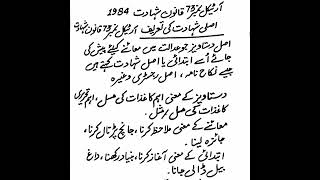 آرٹیکل نمبر 73 قانون شہادت 1984
اصلی شہادت کی تعریف آرٹیکل نمبر 73 قانون شہادت
اصل دستاویز جو عدالت میں معائنے کیلئے پیش کی
جائے اُسے ابتدائی یا اصل شہادت کہتے ہیں
جیسے نکاح نامہ، اصل رجسٹری وغیرہ
دستاویز کے معنی اہم کاغذات کی مسل، اہم تحریری
کاغذات کی مسل
معائنے کے معنی ملاحظہ کرنا، جانچ پڑتال کرنا،
جائزہ لینا۔
ابتدائی کے معنی آغاز کرنا، بنیاد رکھنا، داغ
بیل ڈالی جانا۔